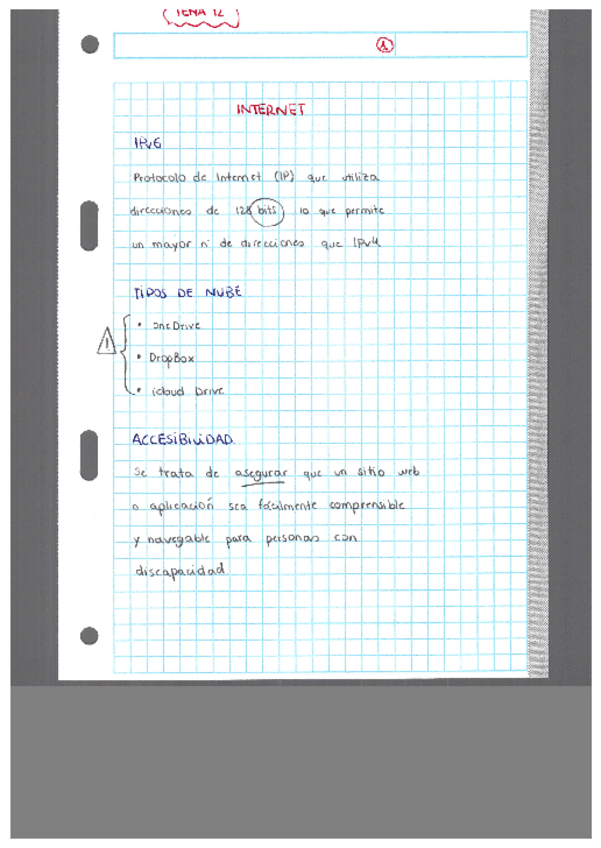 TEMA 12
1
INTERNET
IPv6
Protocolo de Internet (IP) que utiliza
direcciones de 128 bits lo que permite
un mayor nº de direcciones que IPv4
TIPOS DE NUBE
! • OneDrive
• DropBox
• icloud Drive
ACCESIBILIDAD
Se trata de asegurar que un sitio web
o aplicación sea fácilmente comprensible
y navegable para personas con
discapacidad